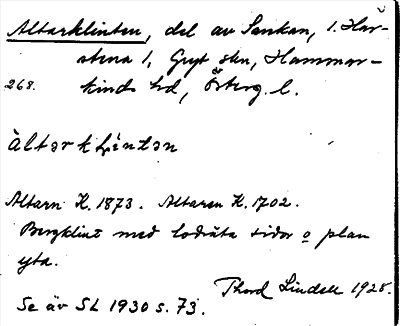 Altarklinten, del av Sankan, 1. Har-
stena 1, Gryt skn, Hammar-
268. kinds hd, Österg. l.
àltarkḷìntən
Altarn K. 1873. Altaren K. 1702.
Bergklint med lodräta sidor o plan
yta.
Thord Lindell 1928.
Se äv SL 1930 s. 73.